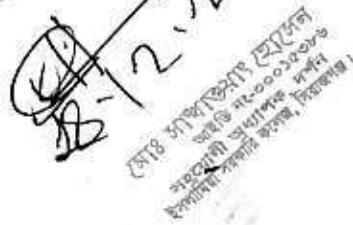 মোঃ সাখাওয়াৎ হোসেন
আইডি নং-০০০১৫৩৮৬
সহযোগী অধ্যাপক দর্শন
ইসলামিয়া সরকারি কলেজ, সিরাজগঞ্জ।